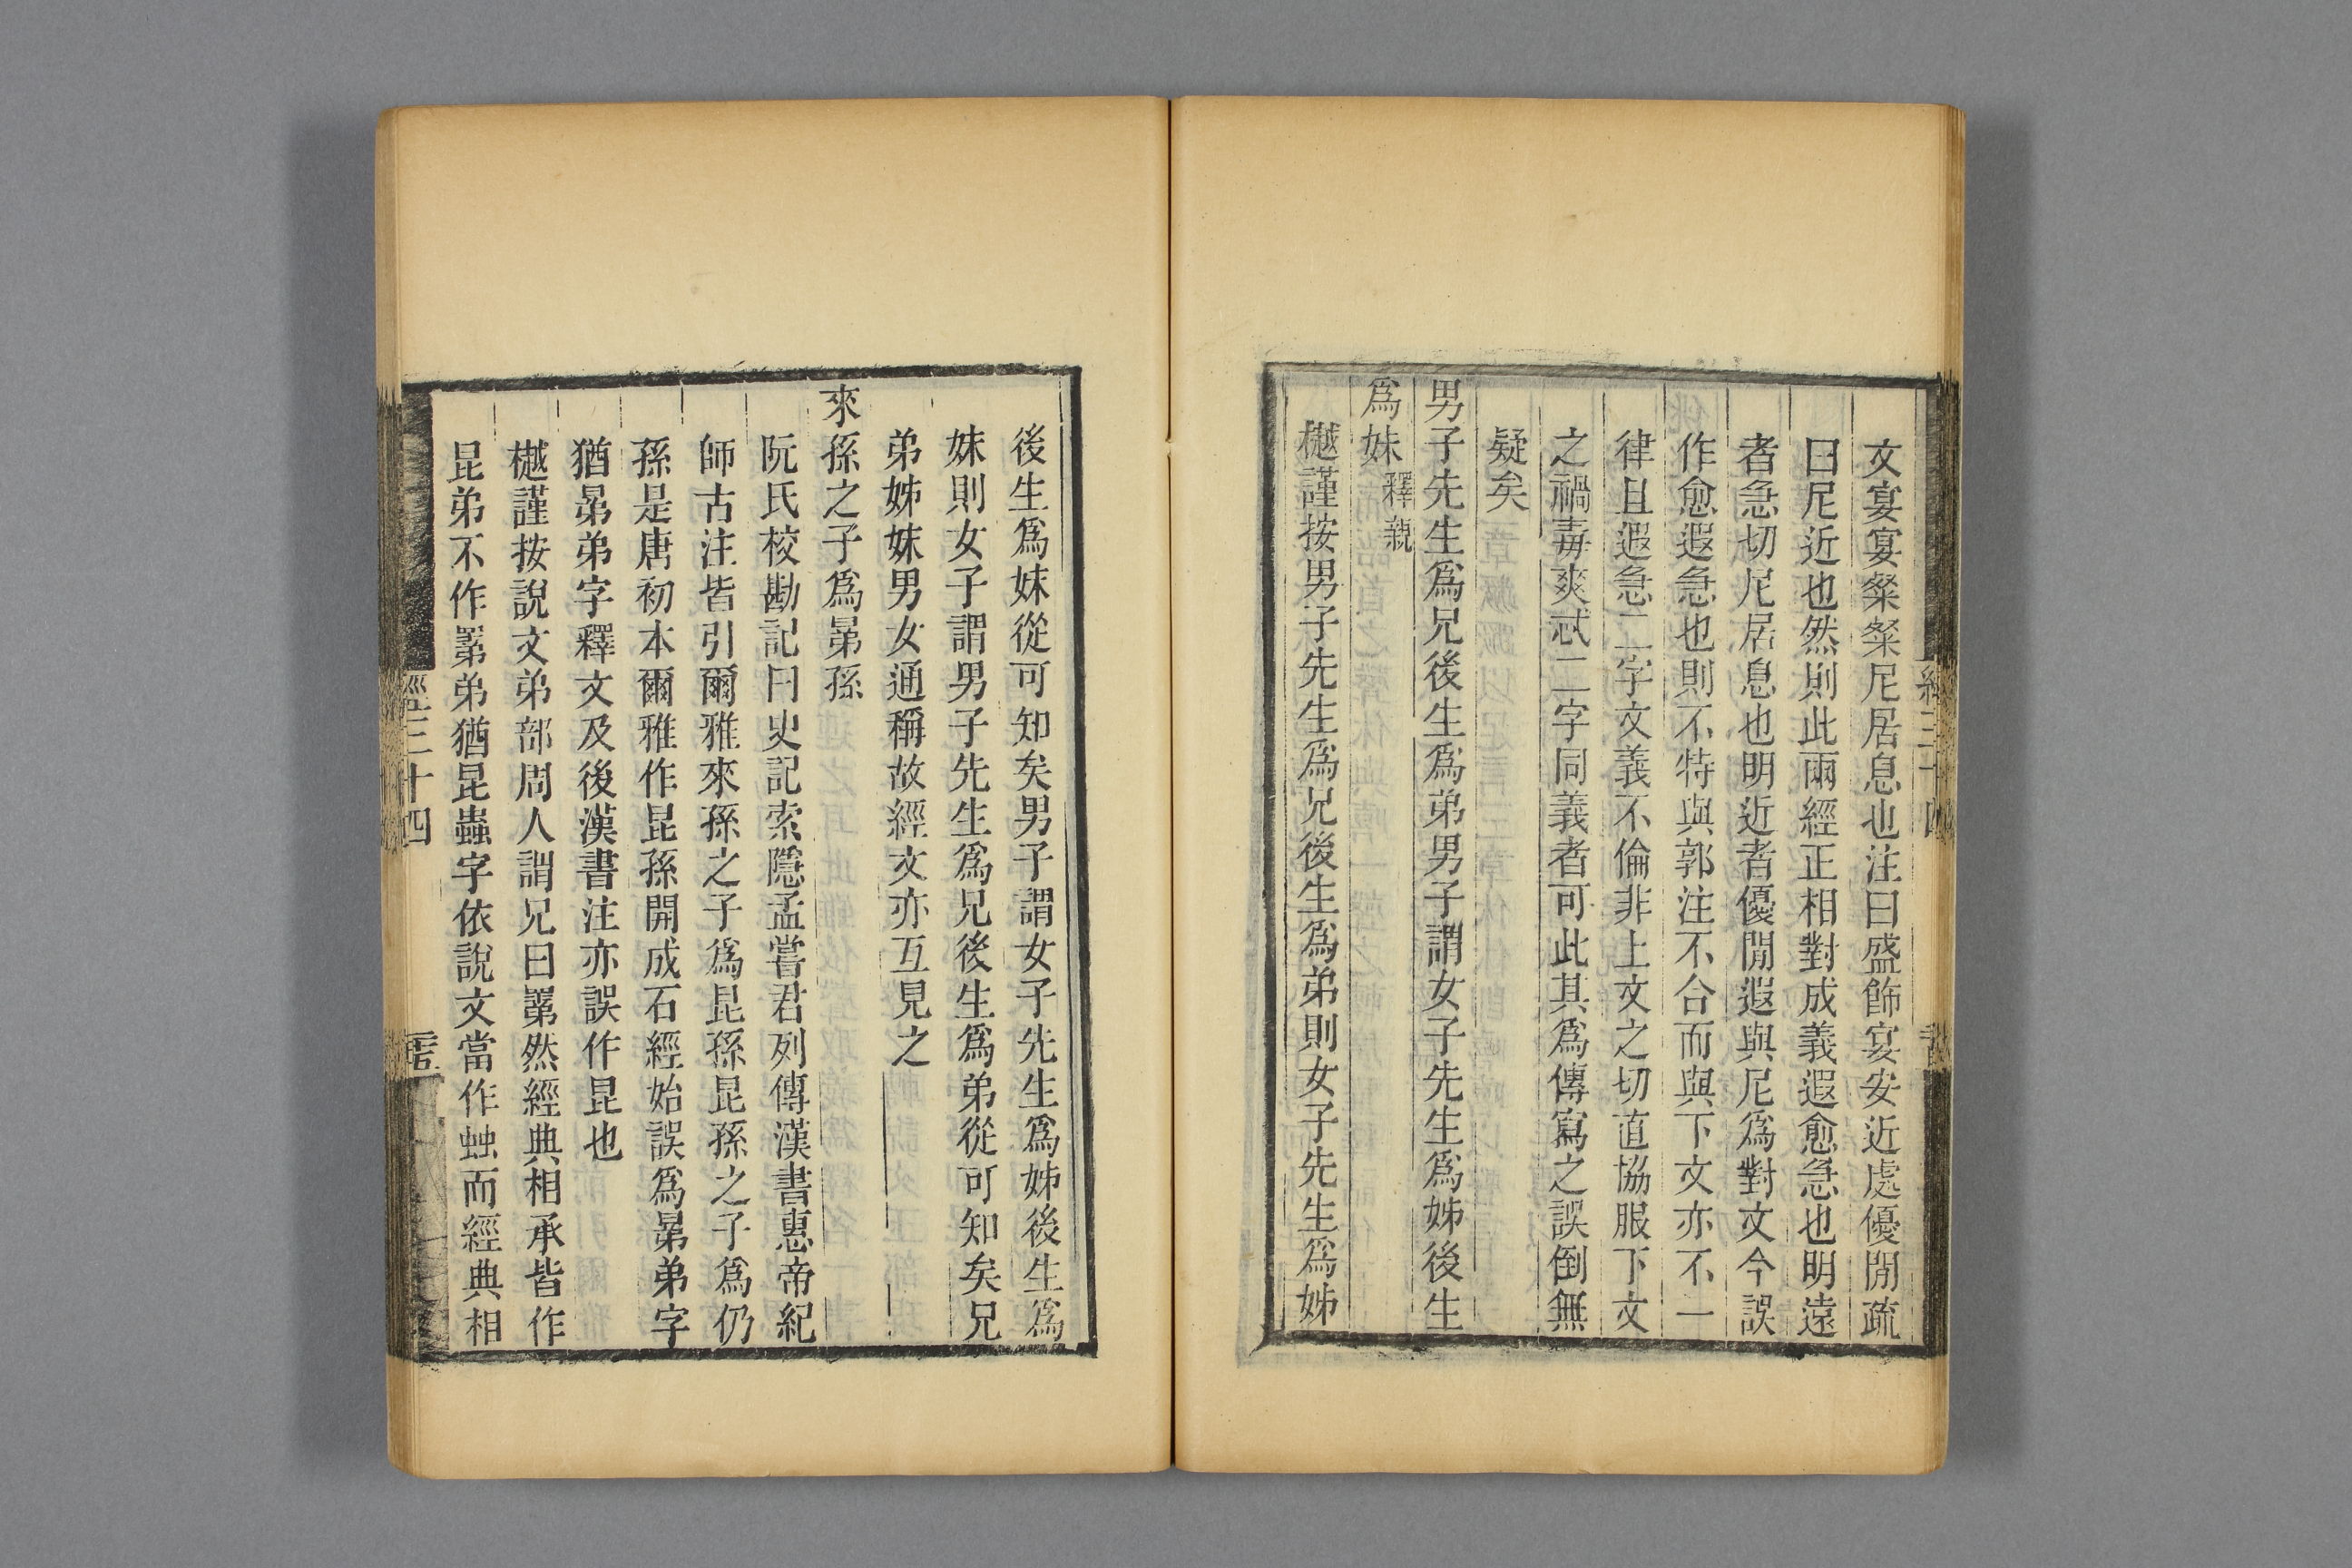 文宴宴粲粲尼居息也注曰盛飾宴安近處優閒疏
曰尼近也然則此兩經正相對成義遐愈急也明遠
者急切尼居息也明近者優閒遐與尼爲對文今誤
作愈遐急也則不特與郭注不合而與下文亦不一
律且遐急二字文義不倫非上文之切直協服下文
之禍毒爽忒二字同義者可此其爲傳寫之誤倒無
疑矣
男子先生爲兄後生爲弟男子謂女子先生爲姊後生
爲妹釋親
樾謹按男子先生爲兄後生爲弟則女子先生爲姊
後生爲妹從可知矣男子謂女子先生爲姊後生爲
妹則女子謂男子先生爲兄後生爲弟從可知矣兄
弟姊妹男女通稱故經文亦互見之
來孫之子爲晜孫
阮氏校勘記曰史記索隱孟嘗君列傳漢書惠帝紀
師古注皆引爾雅來孫之子爲昆孫昆孫之子爲仍
孫是唐初本爾雅作昆孫開成石經始誤爲晜弟字
猶晜弟字釋文及後漢書注亦誤作昆也
樾謹按說文弟部周人謂兄曰䍓然經典相承皆作
昆弟不作䍓弟猶昆蟲字依說文當作䖵而經典相
經三十四